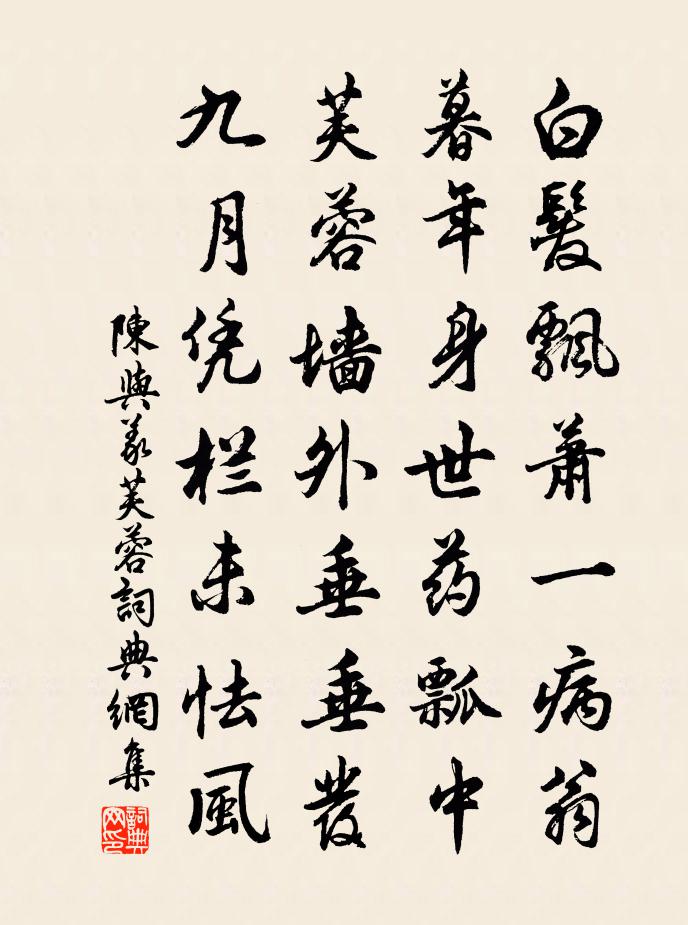 白髮飄蕭一病翁
暮年身世药瓢中
芙蓉墙外垂垂發
九月凭栏未怯風
陳與義芙蓉詞典網集
詞典網印